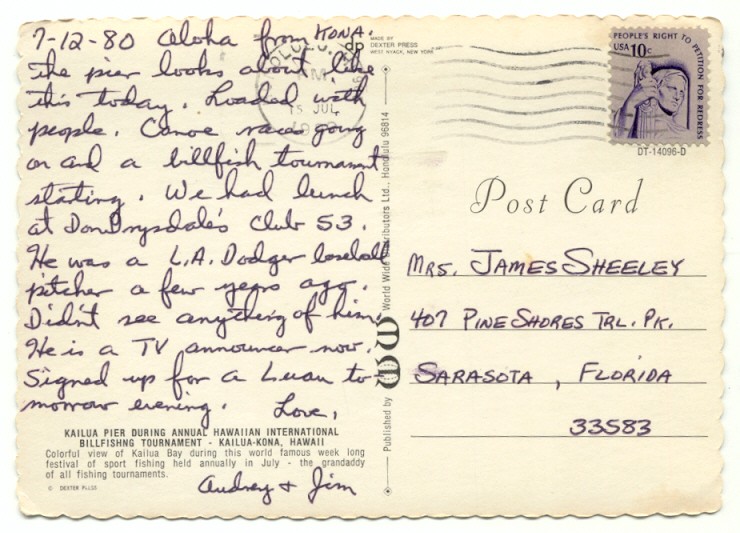 7-12-80 Aloha from KONA.
The pier looks about like
this today. Loaded with
people. Canoe races going
on and a billfish tournament
starting. We had lunch
at Don Drysdale's Club 53.
He was a L.A. Dodger baseball
pitcher a few years ago.
Didn't see anything of him.
He is a TV announcer now.
Signed up for a Luau to
morrow evening. Love,
Audrey + Jim
KAILUA PIER DURING ANNUAL HAWAIIAN INTERNATIONAL
BILLFISHNG TOURNAMENT - KAILUA-KONA, HAWAII
Colorful view of Kailua Bay during this world famous week long
festival of sport fishing held annually in July - the grandaddy
of all fishing tournaments.
© DEXTER
dp
MADE BY
DEXTER PRESS
WEST NYACK, NEW YORK
PM
15 JUL
Published by
World Wide Distributors Ltd., Honolulu 96814
PEOPLE'S RIGHT TO PETITION FOR REDRESS
USA 10c
DT-14096-D
Post Card
MRS. JAMES SHEELEY
407 PINE SHORES TRL. PK.
SARASOTA, FLORIDA
33583